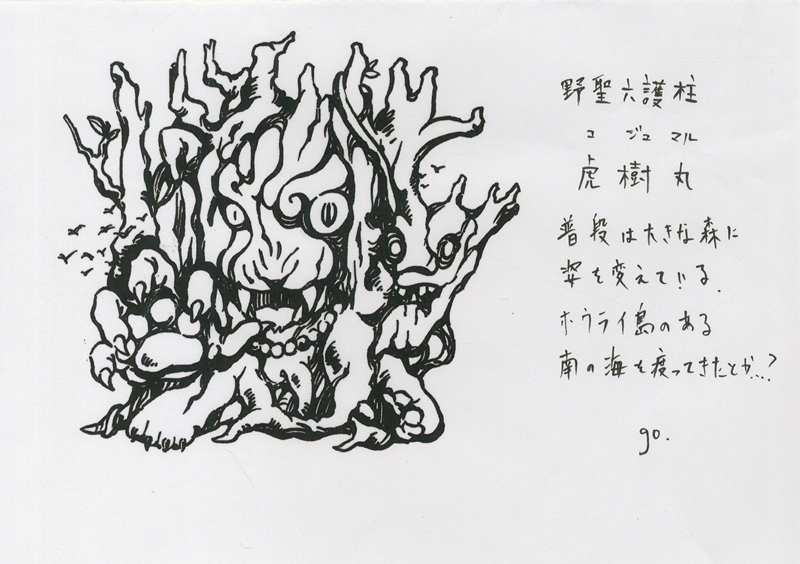 野聖六護柱
コ ジュ マル
虎樹丸
普段は大きな森に
姿を変えている.
ホウライ島のある
南の海を渡ってきたとか...?
go.